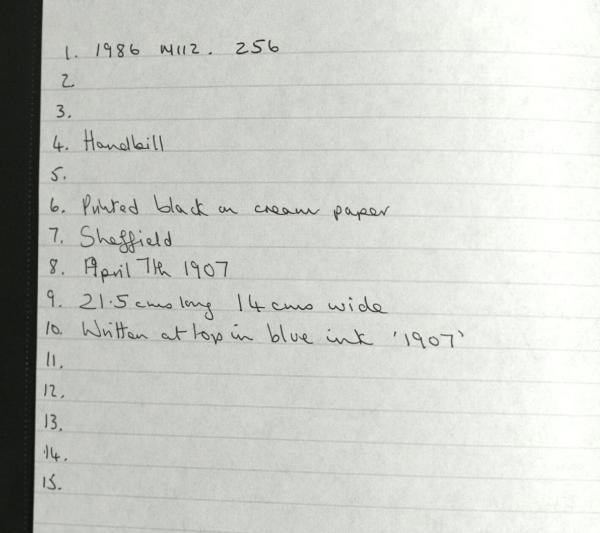 1. 1986 M112. 256
2.
3.
4. Handbill
5.
6. Printed black on cream paper
7. Sheffield
8. April 7th 1907
9. 21.5 cms long 14 cms wide
10. Written at top in blue ink '1907'
11.
12.
13.
14.
15.